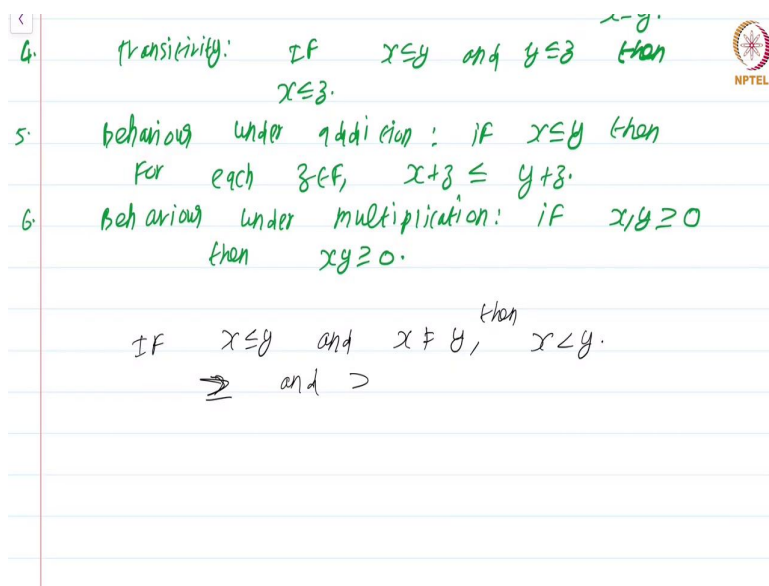 x=y.
4. Transitivity: If x≤y and y≤z then
x≤z.
5. behaviour under addition: if x≤y then
For each z∈F, x+z ≤ y+z.
6. Behaviour under multiplication: if x,y≥0
then xy≥0.
If x≤y and x≠y, then x<y.
≥ and >
NPTEL